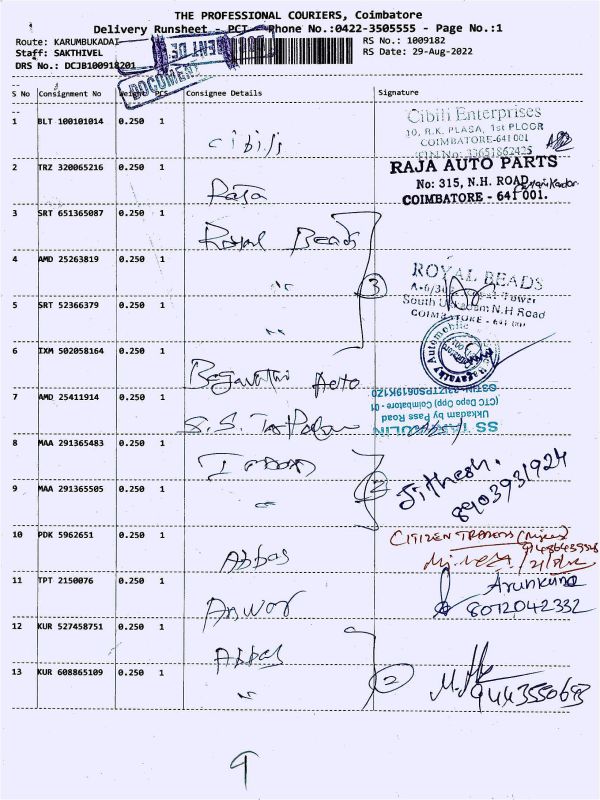 THE PROFESSIONAL COURIERS, Coimbatore
Delivery Runsheet - PCT - Phone No.:0422-3505555 - Page No.:1
Route: KARUMBUKADAI
RS No.: 1009182
Staff: SAKTHIVEL
RS Date: 29-Aug-2022
DRS No.: DCJB100918201
DOCUMENT
S No Consignment No Weight PCS Consignee Details Signature
1 BLT 100101014 0.250 1 Cibili
Cibili Enterprises
10, R.K. PLASA, 1st FLOOR
COIMBATORE-641 001
2 TRZ 320065216 0.250 1 Raja
RAJA AUTO PARTS
No: 315, N.H. ROAD,
COIMBATORE - 641 001.
3 SRT 651365087 0.250 1 Royal Beads
4 AMD 25263819 0.250 1 "
3
ROYAL BEADS
South Ukkadam N.H Road
COIMBATORE - 641 001
5 SRT 52366379 0.250 1 "
6 IXM 502058164 0.250 1 Bagavathi Auto
7 AMD 25411914 0.250 1 S.S.
SS
Ukkadam by Pass Road
(CTC Depo Opp) Coimbatore - 01
8 MAA 291365483 0.250 1
9 MAA 291365505 0.250 1 "
2
Jithesh.
8903931924
10 PDK 5962651 0.250 1 Abbas
CITIZEN TRADERS
11 TPT 2150076 0.250 1 Anwar
Arunkumar
8072042332
12 KUR 527458751 0.250 1 Abbas
13 KUR 608865109 0.250 1 "
2
9443550693
9